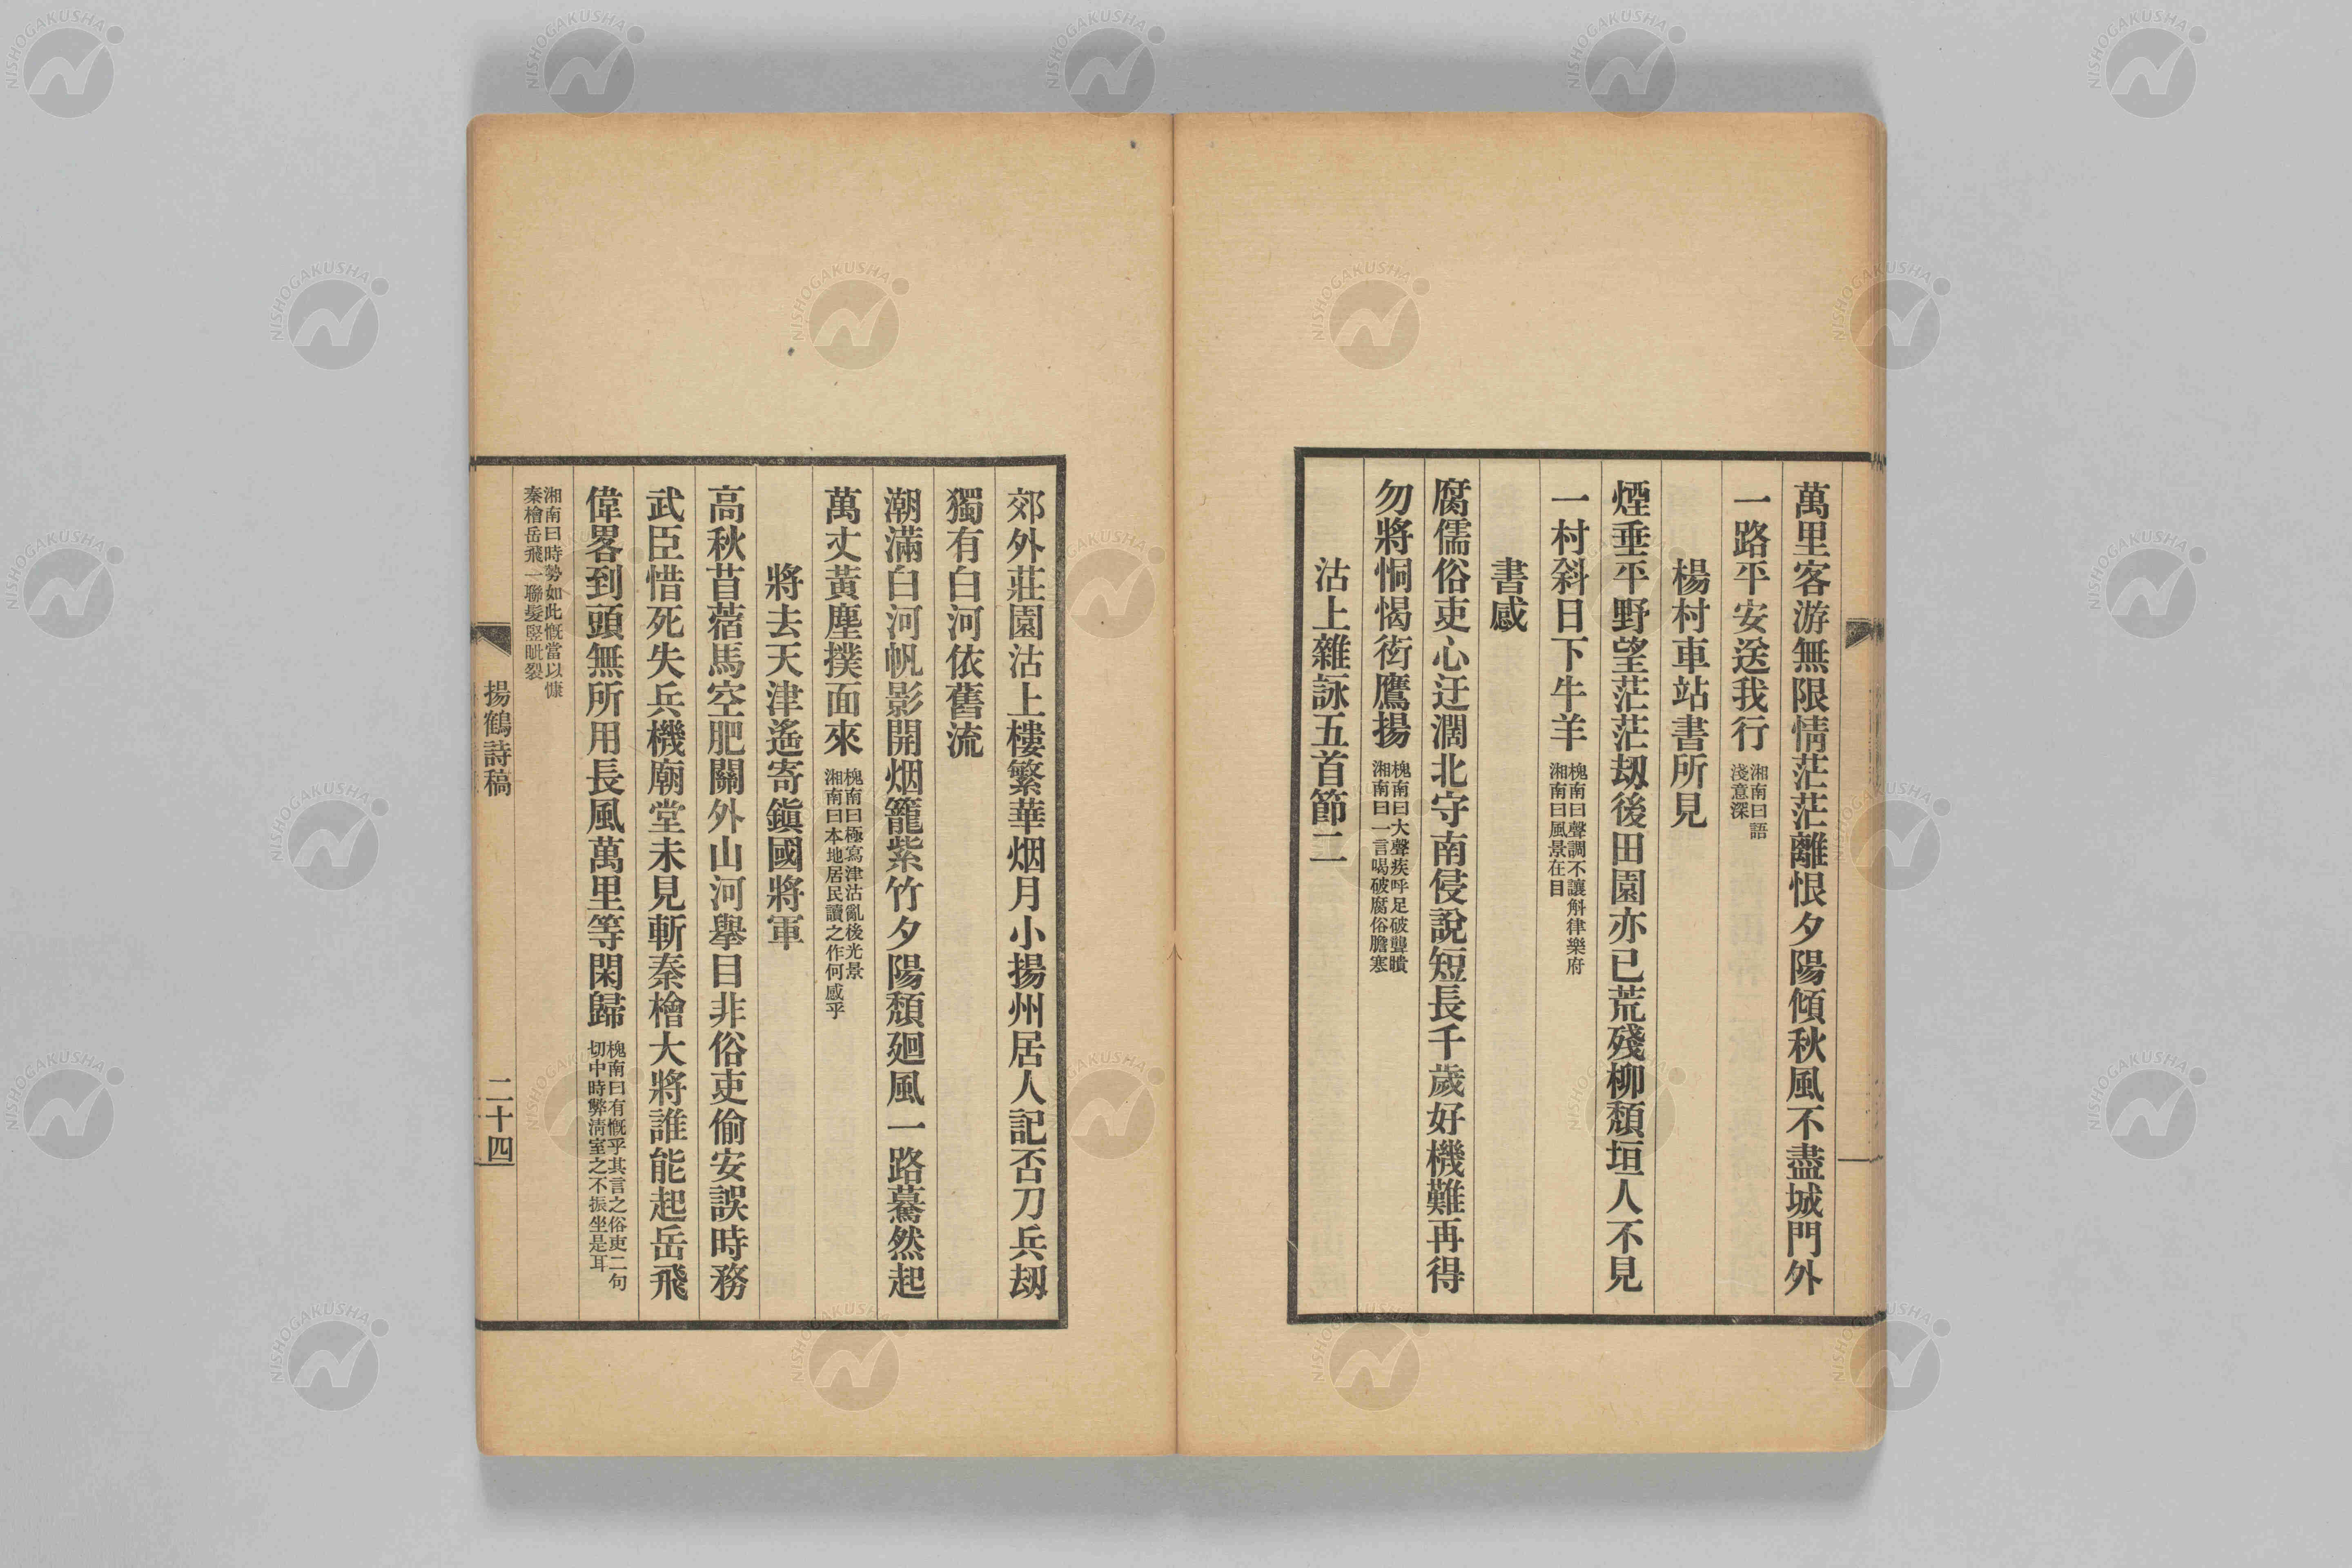 萬里客游無限情茫茫離恨夕陽傾秋風不盡城門外
一路平安送我行
湘南曰語
淺意深
楊村車站書所見
煙垂平野望茫茫劫後田園亦已荒殘柳頹垣人不見
一村斜日下牛羊
槐南曰聲調不讓斛律樂府
湘南曰風景在目
書感
腐儒俗吏心迂濶北守南侵說短長千歲好機難再得
勿將恫愒衒鷹揚
槐南曰大聲疾呼足破聾聵
湘南曰一言喝破腐俗膽寒
沽上雜詠五首節二
郊外莊園沽上樓繁華烟月小揚州居人記否刀兵劫
獨有白河依舊流
潮滿白河帆影開烟籠紫竹夕陽頹廻風一路驀然起
萬丈黃塵撲面來
槐南曰極寫津沽亂後光景
湘南曰本地居民讀之作何感乎
將去天津遙寄鎭國將軍
高秋苜蓿馬空肥關外山河擧目非俗吏偷安誤時務
武臣惜死失兵機廟堂未見斬秦檜大將誰能起岳飛
偉畧到頭無所用長風萬里等閑歸
槐南曰有慨乎其言之俗吏二句
切中時弊淸室之不振坐是耳
湘南曰時勢如此慨當以慷
秦檜岳飛一聯髮竪眦裂
揚鶴詩稿
二十四
NISHOGAKUSHA